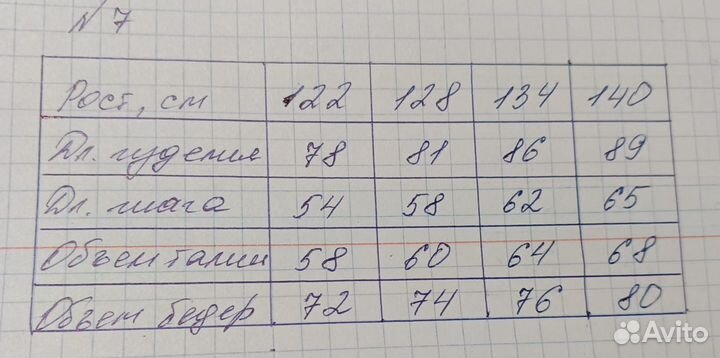 N 7
Рост, см 122 128 134 140
Дл. изделия 78 81 86 89
Дл. шага 54 58 62 65
Объем талии 58 60 64 68
Объем бедер 72 74 76 80
Avito